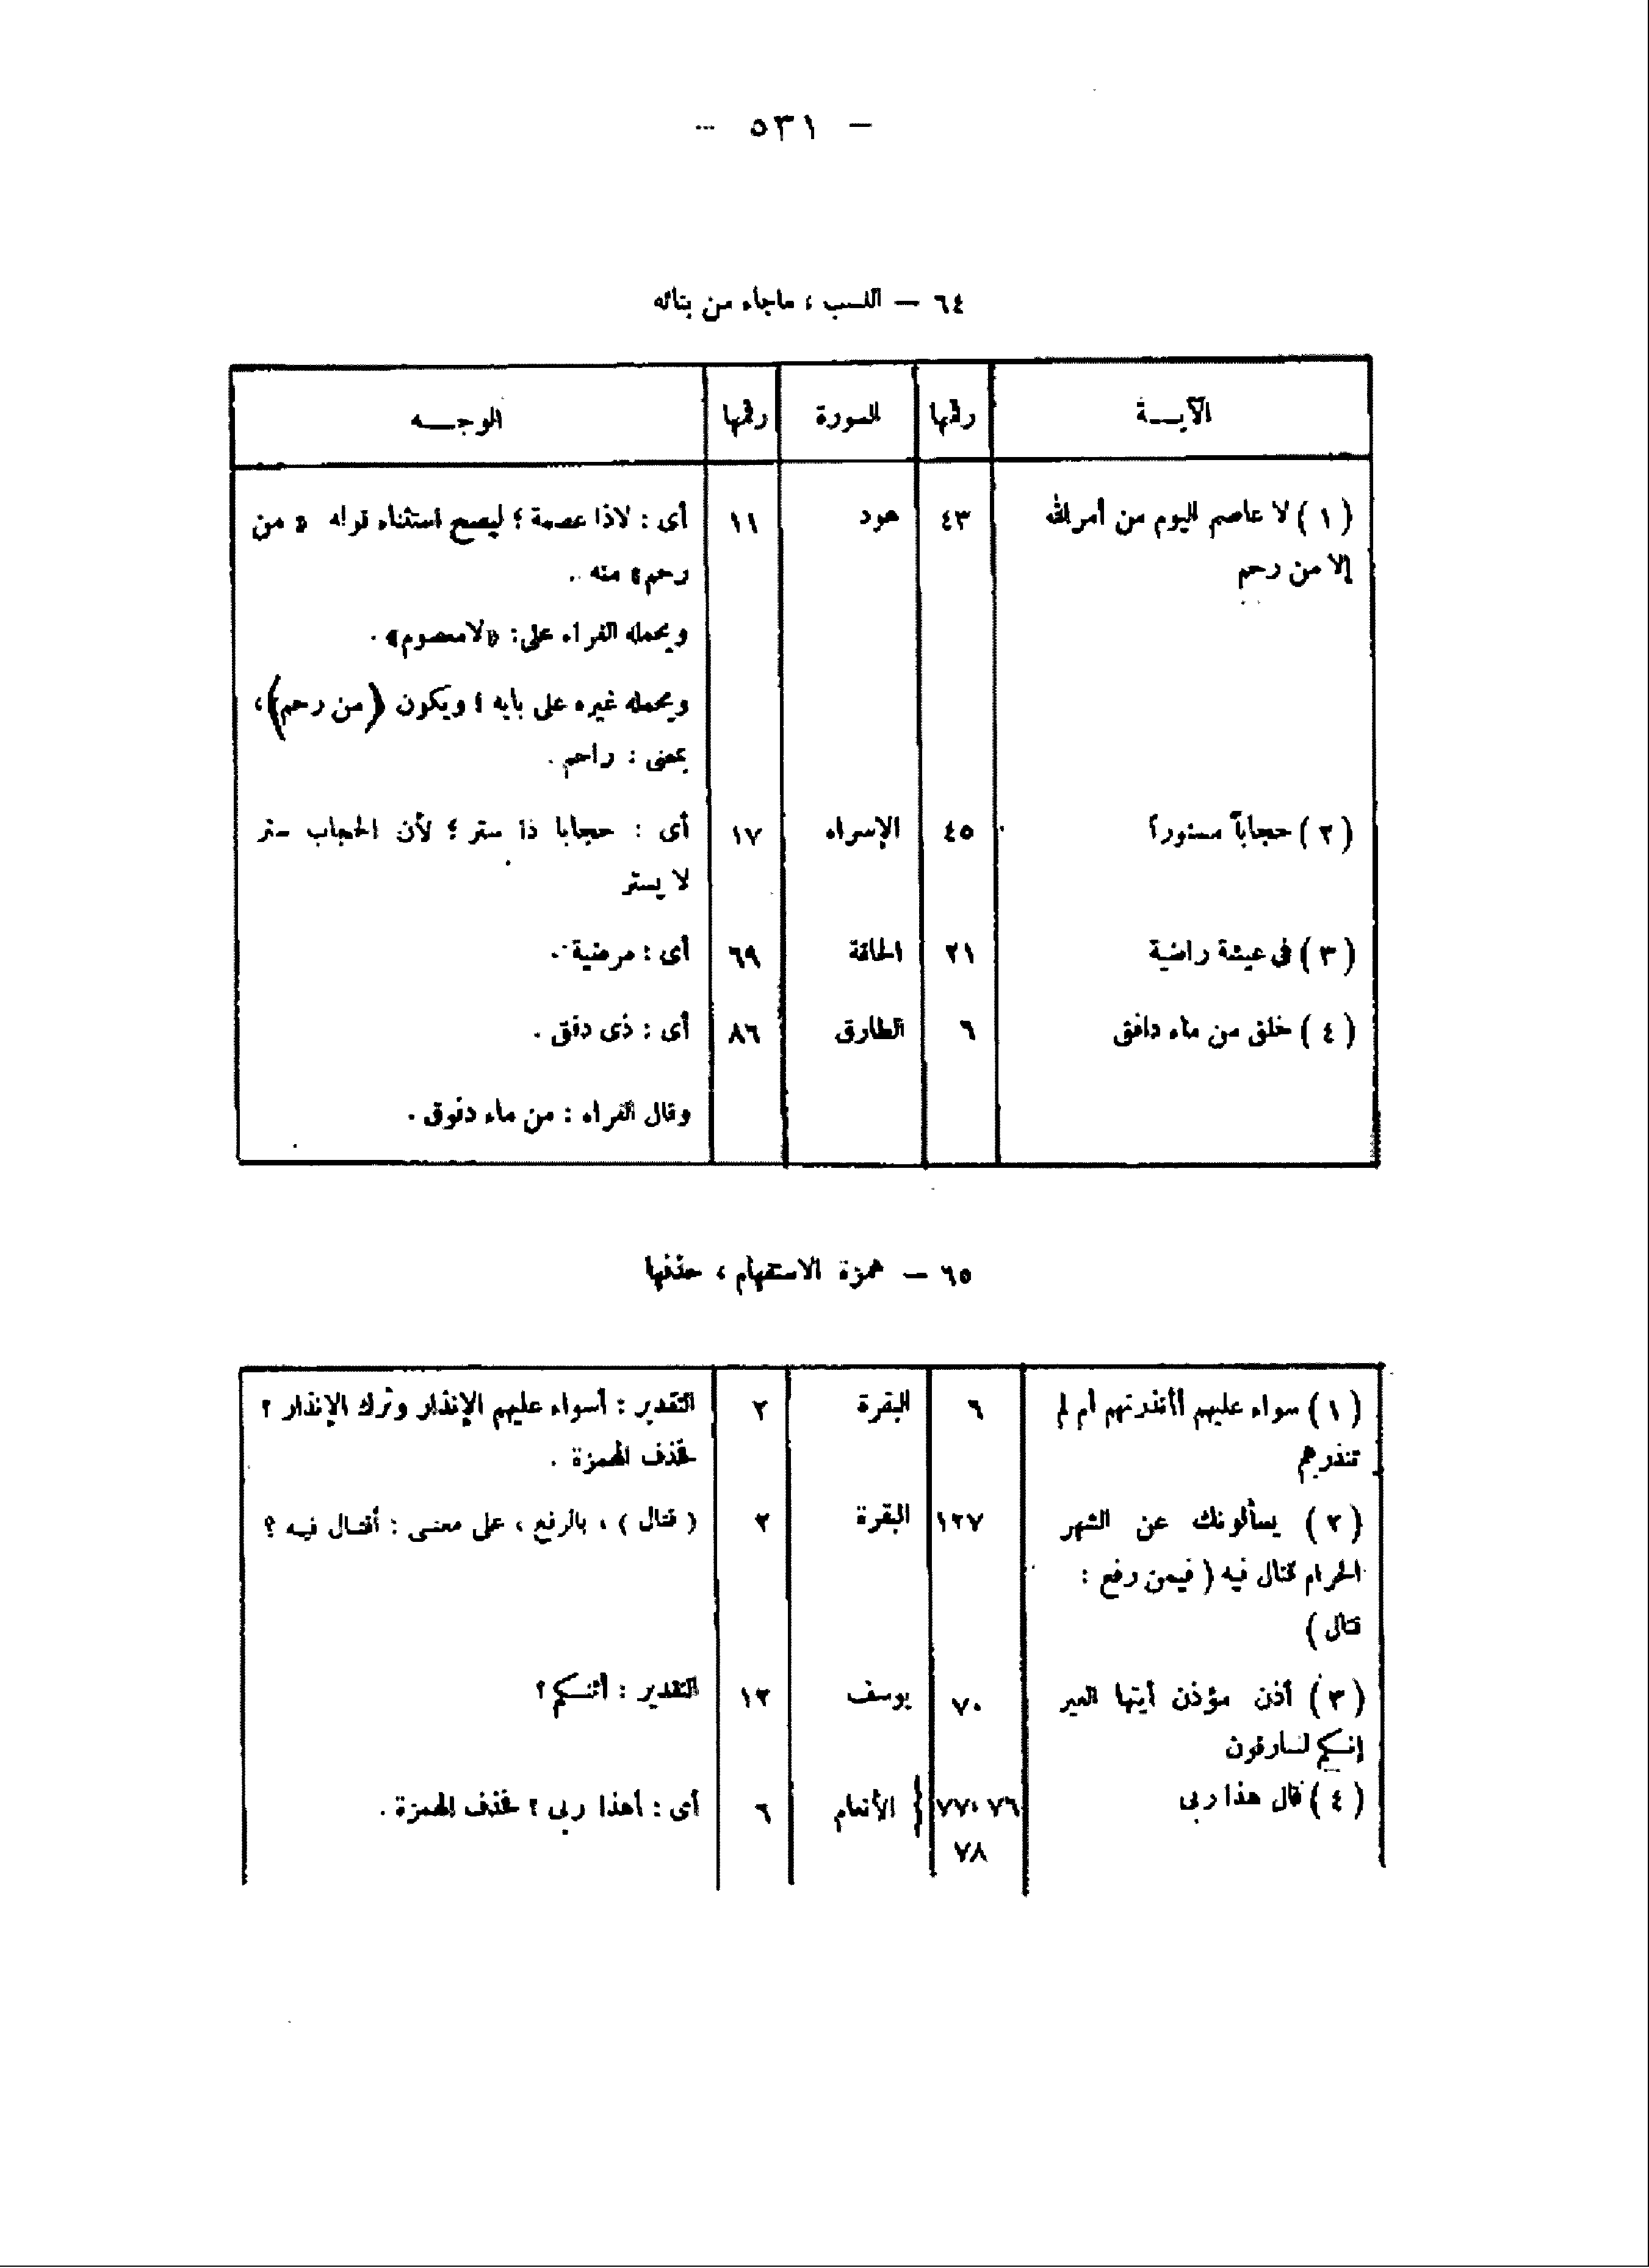 — ٥٣١ —
٦٤ — النسب ، ماجاء من بنائه
الآيــة رقمها السورة رقمها الوجــه
( ١ ) لا عاصم اليوم من أمر الله ٤٣ هود ١١ أى : لاذا عصمة ؛ ليصح استثناء قوله « من
إلا من رحم رحم» منه .
ويحمله الفراء على: «لامعصوم» .
ويحمله غيره على بابه ؛ ويكون (من رحم)،
بمعنى : راحم .
( ٢ ) حجاباً مستوراً ٤٥ الإسراء ١٧ أى : حجابا ذا ستر ؛ لأن الحجاب ستر
لا يستر
( ٣ ) فى عيشة راضية ٢١ الحاقة ٦٩ أى : مرضية .
( ٤ ) خلق من ماء دافق ٦ الطارق ٨٦ أى : ذى دفق .
وقال الفراء : من ماء دفوق .
٦٥ — همزة الاستفهام ، حذفها
( ١ ) سواء عليهم أأنذرتهم أم لم ٦ البقرة ٢ التقدير : أسواء عليهم الإنذار وترك الإنذار ؟
تنذرهم فحذف الهمزة .
( ٢ ) يسألونك عن الشهر ١٢٧ البقرة ٢ ( قتال ) ، بالرفع ، على معنى : أقتال فيه ؟
الحرام قتال فيه ( فيمن رفع :
قتال )
( ٣ ) أذن مؤذن أيتها العير ٧٠ يوسف ١٢ التقدير : أئنكم ؟
إنكم لسارقون
( ٤ ) قال هذا ربى ٧٦ ،٧٧ الأنعام ٦ أى : أهذا ربى ؟ فحذف الهمزة .
٧٨